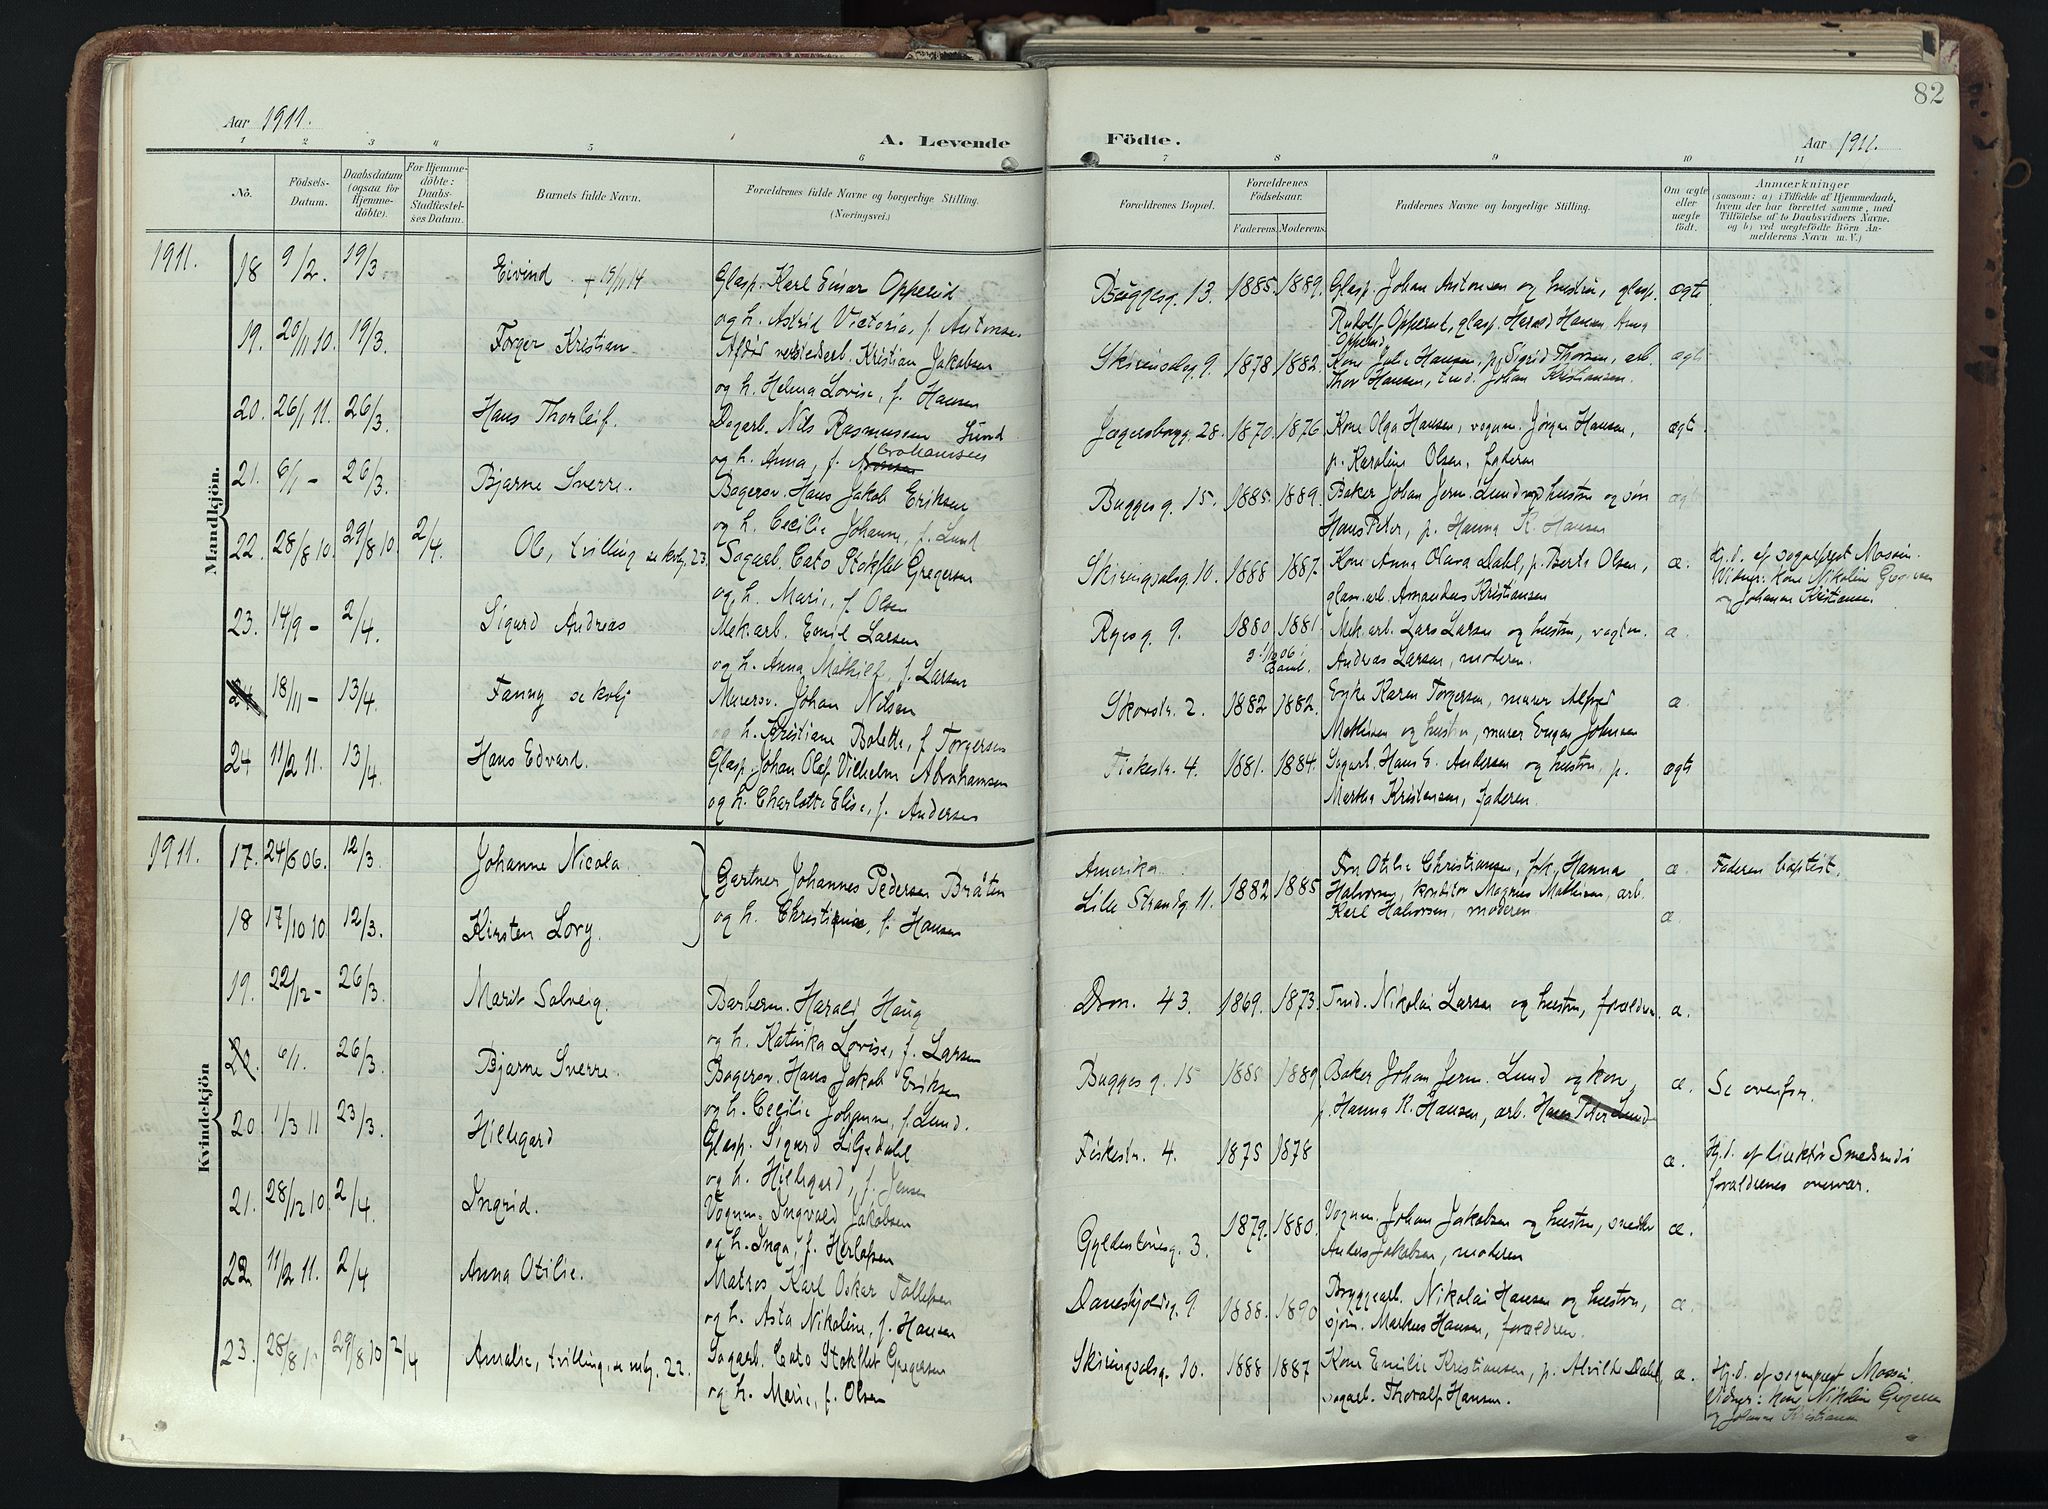 82
Aar 1911.
A. Levende Födte.
Aar 1911.
1 2 3 4 5 6 7 8 9 10 11
No.
Födsels-Datum.
Daabsdatum (ogsaa for Hjemmedöbte).
For Hjemmedöbte: Daabs-Stadfæstelses Datum.
Barnets fulde Navn.
Forældrenes fulde Navne og borgerlige Stilling. (Næringsvei.)
Forældrenes Bopæl.
Forældrenes Födselsaar.
Faderens. Moderens.
Faddernes Navne og borgerlige Stilling.
Om ægte eller uægte födt.
Anmærkninger
(saasom: a) i Tilfælde af Hjemmedaab, hvem der har forrettet samme, med Tilföielse af to Daabsvidners Navne. og b) ved uægtefödte Börn Anmelderens Navn m. V.)
Mandkjön.
1911. 18 9/2. 19/3 Eivind + 15/11 14 Glasp. Karl Einar Opperud Buggesg. 13. 1885. 1889. Glasp. Johan Antonsen og hustru, glasp. ægte
og h. Astrid Victoria, f. Antonsen Rudolf Opperud, glasp. Harald Hansen. Anna Opperud
19. 20/11 10. 19/3. Torger Kristian Afdøde verkstedarb. Kristian Jakobsen Skiringsalsg. 9. 1878 1882. Kone Julie Hansen, p. Sigrid Thorsen, arb. ægte
og h. Helma Lovise, f. Hansen Thor Hansen, tmd. Johan Kristiansen.
20. 26/1 11. 26/3. Hans Thorleif. Dagarb. Nils Rasmussen Lund Jægersborgg. 28. 1870. 1876. Kone Olga Hansen, vognm. Jørgen Hansen, ægte
og h. Anna, f. Grohansen p. Karoline Olsen, faderen
21. 6/1 - 26/3. Bjarne Sverre. Bagersv. Hans Jakob Eriksen Buggesg. 15. 1885. 1889. Baker Johan Jerm. Lund og hustru og søn ægte
og h. Cecilie Johanne, f. Lund Hans Peter, p. Hanna K. Hansen
22. 28/8 10. 29/8 10. 2/4. Ole, tvilling se kvkj. 23. Sagarb. Cato Stokflet Gregersen Skiringsalsg. 10. 1888 1887. Kone Anna Olava Dahl, p. Berta Olsen, æ. Hj.d. af sogneprest Mossin.
og h. Marie, f. Olsen glasm.arb. Amandus Kristiansen Vidner: Kone Nikoline Gregersen og Johanne Kristiansen.
23. 14/9 - 2/4. Sigurd Andreas Mek.arb. Emil Larsen Ryesg. 9. 1880 1881. Mek.arb. Lars Larsen og hustru, vagtm. æ.
og h. Anna Mathilde, f. Larsen Andreas Larsen, moderen.
24 18/11 - 13/4. Fanny se kvkj Murersv. Johan Nilsen Skovstr. 2. 1882 1882. Enke Karen Torgersen, murer Alfred æ
og h. Kristiane Bolette, f. Torgersen Mathisen og hustru, murer Eugen Johnsen
24 11/2 11. 13/4 Hans Edvard. Glasp. Johan Olaf Vilhelm Abrahamsen Fiskestr. 4. 1881. 1884. Sagarb. Hans E. Andersen og hustru, p. ægte
og h. Charlotte Elise, f. Andersen Martha Kristensen, faderen.
Kvindekjön
1911. 17. 24/5 06. 12/3. Johanne Nicola Gartner Johannes Pedersen Bråten Amerika. 1882 1885 Fru Otilie Christiansen, frk. Hanna æ Faderen baptist.
18 17/10 10 12/3. Kirsten Lovy. og h. Christiane, f. Hansen Lille Strandg. 11. Halvorsen, konditor Magnus Mathisen, arb. Karl Halvorsen, moderen æ.
19. 22/12 - 26/3 Marit Solveig. Barberm. Harald Haug Dron. 43. 1869. 1873. Tmd. Nikolai Larsen og hustru, forældrene æ.
og h. Katinka Lovise, f. Larsen
20. 6/1. 26/3. Bjarne Sverre. Bagersv. Hans Jakob Eriksen Buggesg. 15 1885 1889. Baker Johan Jerm. Lund og kone, æ Se ovenfor.
og h. Cecilie Johanne, f. Lund. p. Hanna K. Hansen, arb. Hans Peter Lund
20. 1/3 11 23/3. Hildegard Glasp. Sigurd Liljedahl Fiskestr. 4. 1875 1878 æ. Hj.d. af direktør Smedsrud i
og h. Hildegard, f. Jensen forældrenes overvær.
21. 28/12 10 2/4 Ingrid. Vognm. Ingvald Jakobsen Gyldenløvesg. 3. 1879. 1880. Vognm. Johan Jakobsen og hustru, snedker æ.
og h. Inga, f. Herlofsen Anders Jakobsen, moderen
22 11/2 11. 2/4 Anna Otilie. Matros Karl Oskar Tollefsen Daneskjoldsg. 9. 1888. 1890 Bryggearb. Nikolai Hansen og hustru, æ.
og h. Asta Nikoline, f. Hansen sjøm. Markus Hansen, forældrene.
23. 28/8 10 29/8 10 2/4 Amalie, tvilling, se mkj. 22. Sagarb. Cato Stokflet Gregersen Skiringsalsg. 10. 1888 1887 Kone Emilie Kristiansen, p. Alvilde Dahl, æ. Hj.d. af sogneprest Mossin.
og h. Marie, f. Olsen sagarb. Thoralf Hansen. Vidner: kone Nikoline Gregersen og Johanne Kristiansen